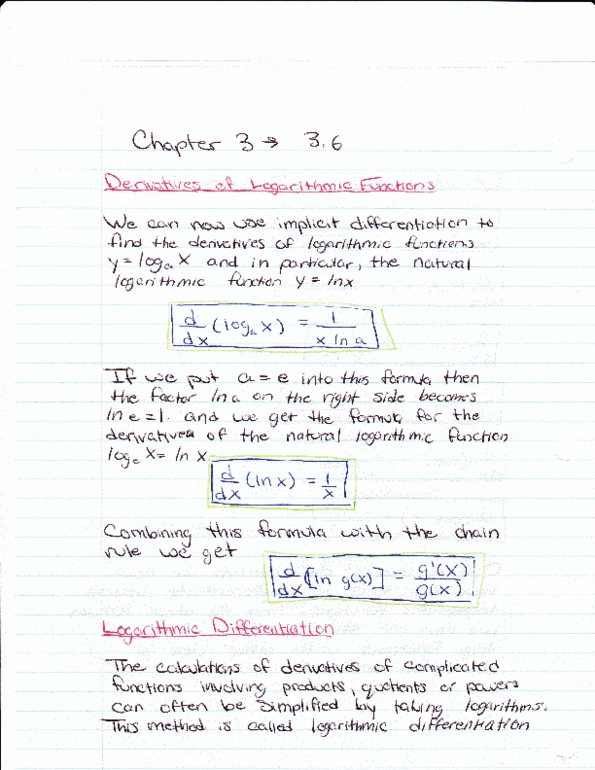 Chapter 3 → 3.6
Derivatives of Logarithmic Functions
We can now use implicit differentiation to
find the derivatives of logarithmic functions
y = logₐ x and in particular, the natural
logarithmic function y = lnx
d/dx (logₐ x) = 1/(x ln a)
If we put a = e into this formula then
the factor ln a on the right side becomes
ln e = 1. and we get the formula for the
derivative of the natural logarithmic function
logₑ x = ln x
d/dx (ln x) = 1/x
Combining this formula with the chain
rule we get
d/dx [ln g(x)] = g'(x)/g(x)
Logarithmic Differentiation
The calculations of derivatives of complicated
functions involving products, quotients or powers
can often be simplified by taking logarithms.
This method is called logarithmic differentiation